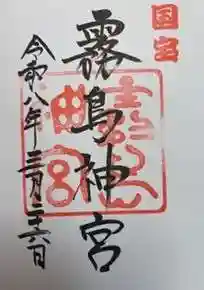 国宝
霧島神宮
令和八年三月二十六日